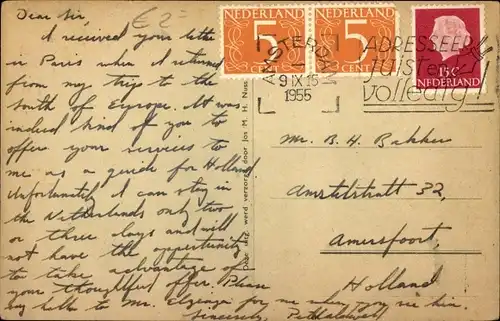 Dear Sir, € 2=
I received your letter
in Paris when I returned
from my trip to the
South of Europe. It was
indeed kind of you to
offer your services to
me as a guide for Holland
Unfortunately I can stay in
the Netherlands only two
or three days and will
not have the opportunity
to take advantage of
your thoughtful offer. Please
say hello to Mr. for me when you see him.
Sincerely,
werd verzorgd door Jos M. H. Nus
NEDERLAND
5
CENT
NEDERLAND
5
CENT
15c
NEDERLAND
AMSTERDAM
9 IX 15
1955
ADRESSEER
juist en
volledig!
Mr. B. H. Bakker
Amstelstraat 32,
Amersfoort,
Holland